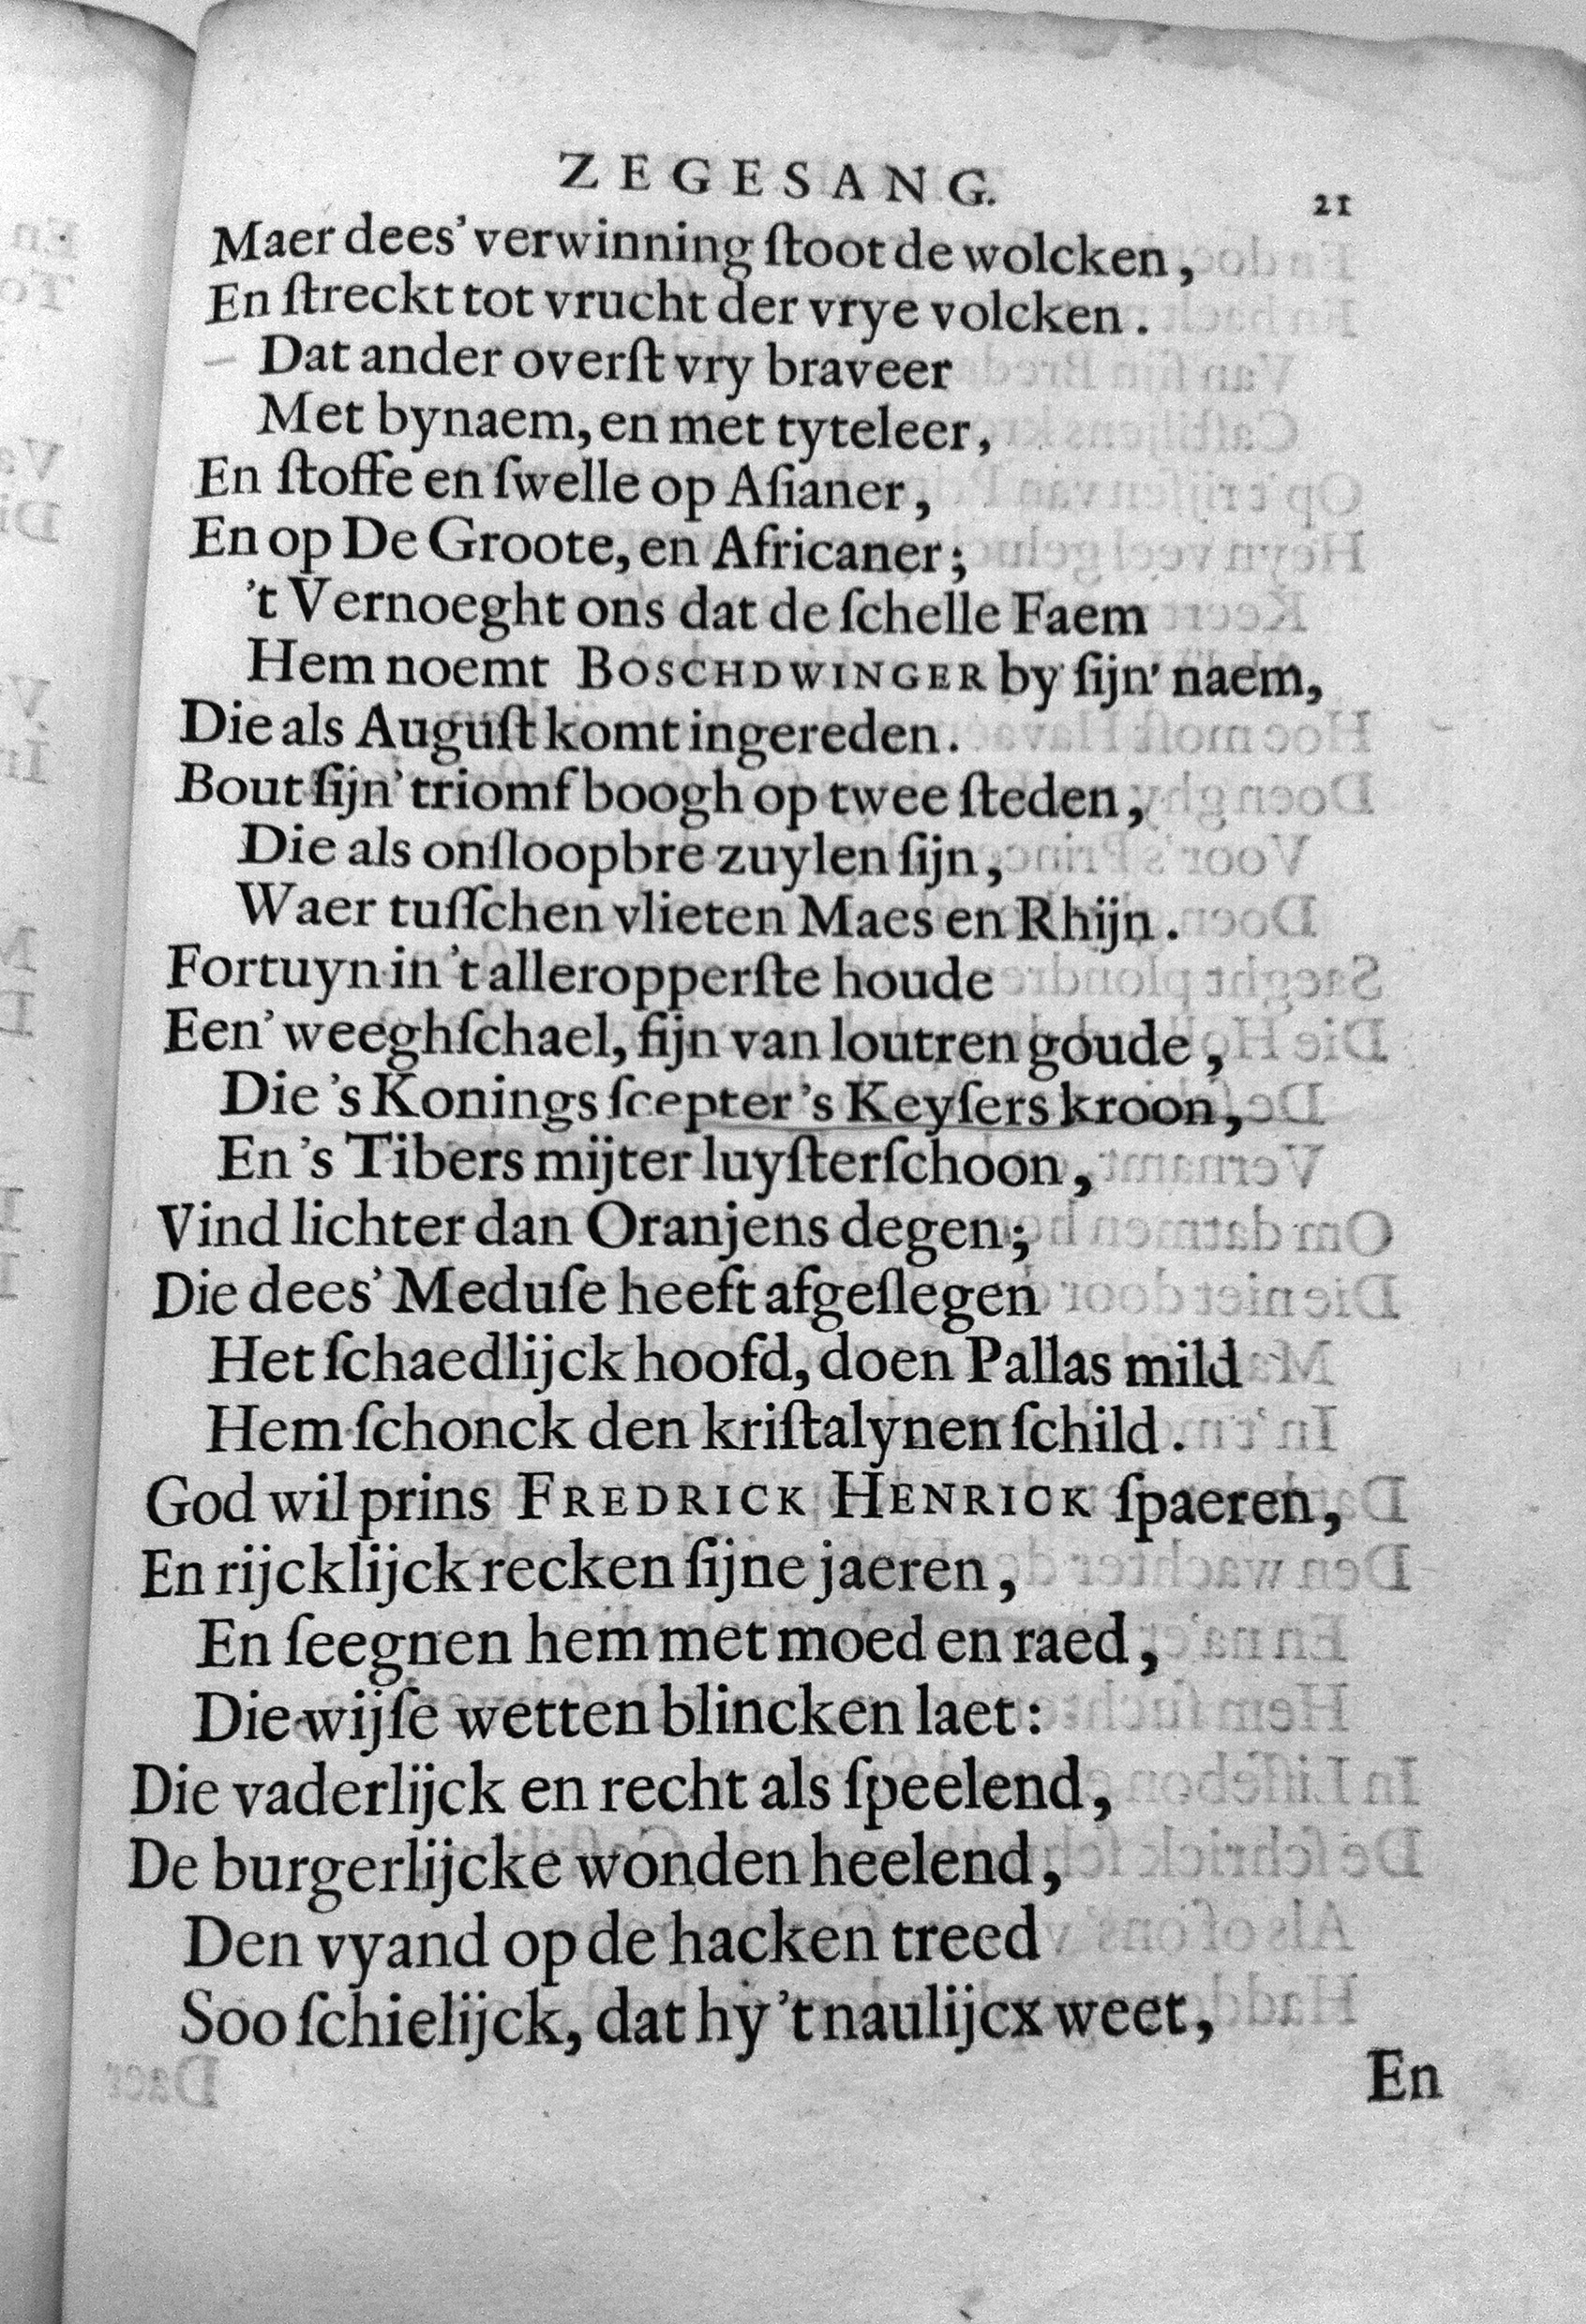 ZEGESANG. 21
Maer dees' verwinning ſtoot de wolcken,
En ſtreckt tot vrucht der vrye volcken.
Dat ander overſt vry braveer
Met bynaem, en met tyteleer,
En ſtoffe en ſwelle op Aſianer,
En op De Groote, en Africaner;
't Vernoeght ons dat de ſchelle Faem
Hem noemt BOSCHDWINGER by ſijn' naem,
Die als Auguſt komt ingereden.
Bout ſijn' triomf boogh op twee ſteden,
Die als onſloopbre zuylen ſijn,
Waer tuſſchen vlieten Maes en Rhijn.
Fortuyn in 't alleropperſte houde
Een' weeghſchael, fijn van loutren goude,
Die 's Konings ſcepter 's Keyſers kroon,
En 's Tibers mijter luyſterſchoon,
Vind lichter dan Oranjens degen;
Die dees' Meduſe heeft afgeſlegen
Het ſchaedlijck hoofd, doen Pallas mild
Hem ſchonck den kriſtalynen ſchild.
God wil prins FREDRICK HENRICK ſpaeren,
En rijcklijck recken ſijne jaeren,
En ſeegnen hem met moed en raed,
Die wijſe wetten blincken laet:
Die vaderlijck en recht als ſpeelend,
De burgerlijcke wonden heelend,
Den vyand op de hacken treed
Soo ſchielijck, dat hy 't naulijcx weet,
En